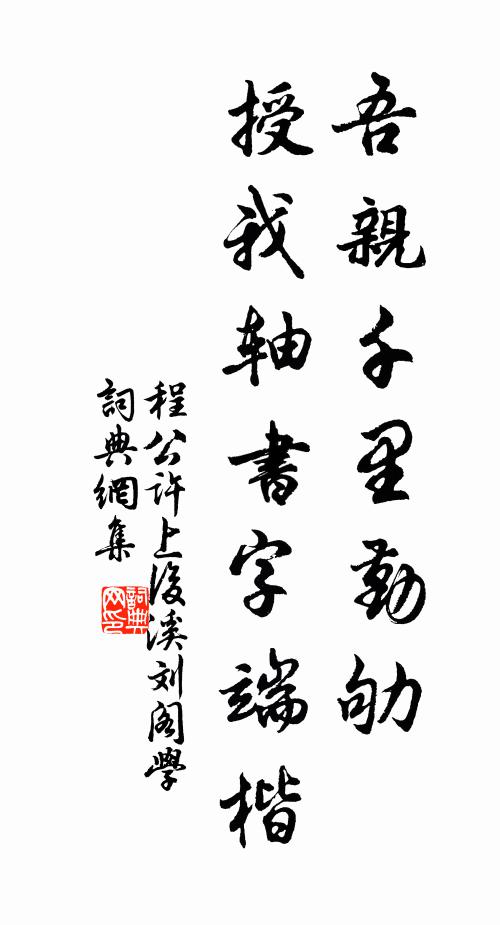 吾親千里勤劬
授我軸書字端楷
程公許上後溪刘阁學
詞典網集
詞典网印